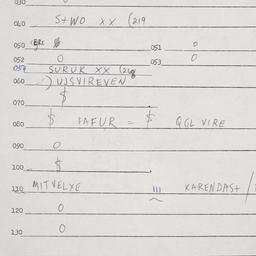 030
040 S+WO XX (219
050 051 0
052 0 053 0
054 SURUK XX (218
060 ) UJSVIREVEN
$
070
080 $ FAFUR = $ QGL VIRE
090 0
100 $
110 MITVELYE 111 KARENDAS+
120 0
130 0